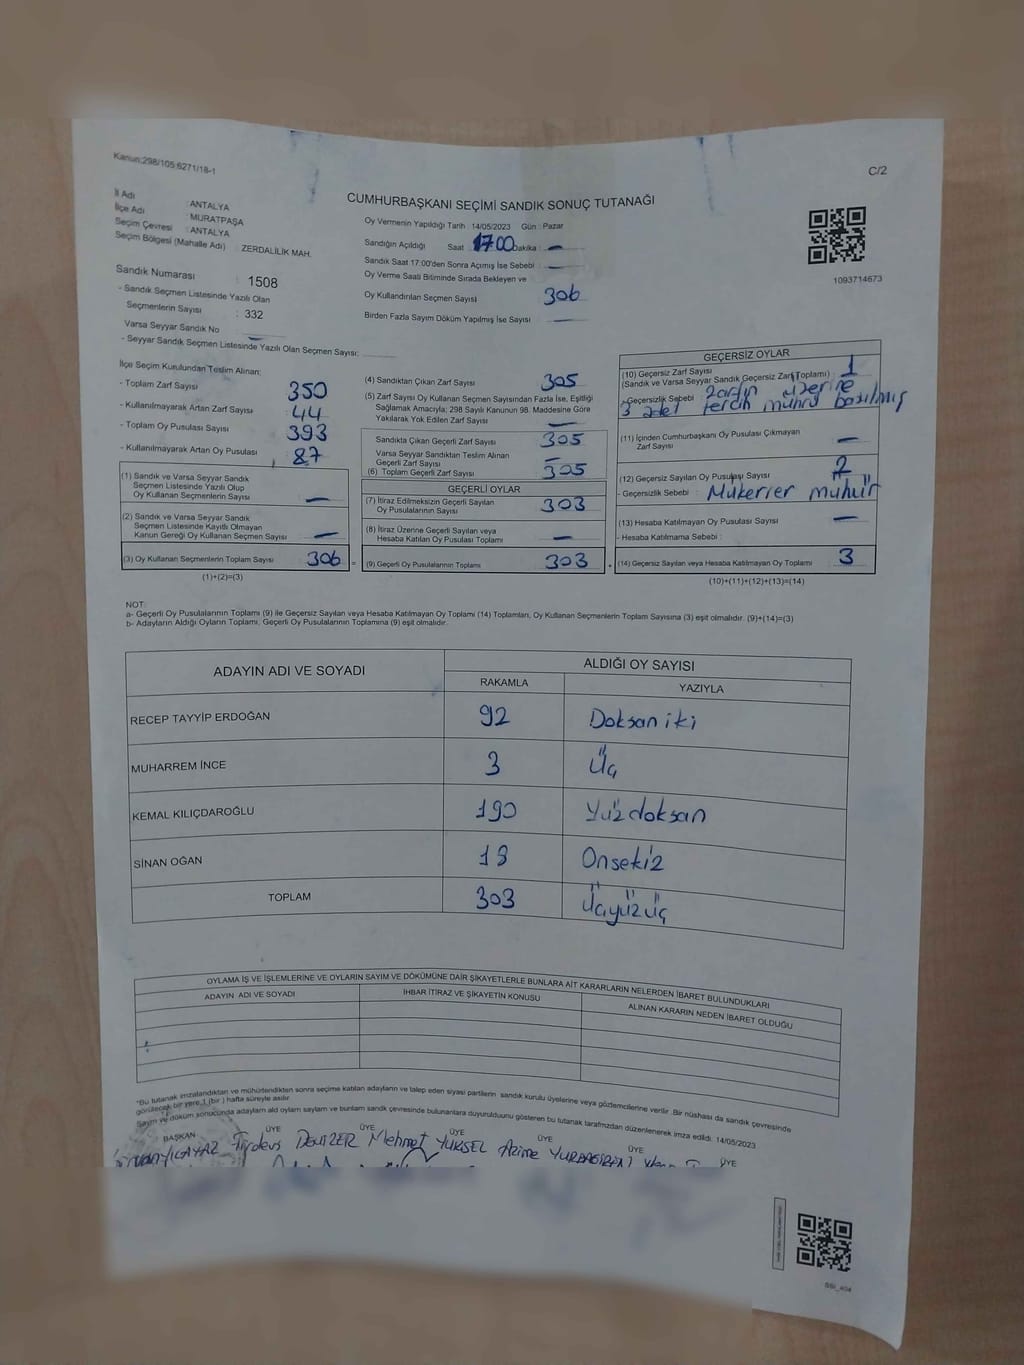 Kanun:298/105;6271/18-1
C/2
İl Adı : ANTALYA
İlçe Adı : MURATPAŞA
Seçim Çevresi : ANTALYA
Seçim Bölgesi (Mahalle Adı) : ZERDALİLİK MAH.
CUMHURBAŞKANI SEÇİMİ SANDIK SONUÇ TUTANAĞI
Oy Vermenin Yapıldığı Tarih : 14/05/2023 Gün : Pazar
Sandığın Açıldığı Saat : 17.00 Dakika : —
Sandık Saat 17:00'den Sonra Açımış İse Sebebi : —
Oy Verme Saati Bitiminde Sırada Bekleyen ve
Oy Kullandırılan Seçmen Sayısı 306
Birden Fazla Sayım Döküm Yapılmış İse Sayısı —
1093714673
Sandık Numarası : 1508
- Sandık Seçmen Listesinde Yazılı Olan
Seçmenlerin Sayısı : 332
Varsa Seyyar Sandık No —
- Seyyar Sandık Seçmen Listesinde Yazılı Olan Seçmen Sayısı:
İlçe Seçim Kurulundan Teslim Alınan:
- Toplam Zarf Sayısı 350
- Kullanılmayarak Artan Zarf Sayısı 44
- Toplam Oy Pusulası Sayısı 393
- Kullanılmayarak Artan Oy Pusulası 87
(1) Sandık ve Varsa Seyyar Sandık
Seçmen Listesinde Yazılı Olup
Oy Kullanan Seçmenlerin Sayısı —
(2) Sandık ve Varsa Seyyar Sandık
Seçmen Listesinde Kayıtlı Olmayan
Kanun Gereği Oy Kullanan Seçmen Sayısı —
(3) Oy Kullanan Seçmenlerin Toplam Sayısı 306
(1)+(2)=(3)
(4) Sandıktan Çıkan Zarf Sayısı 305
(5) Zarf Sayısı Oy Kullanan Seçmen Sayısından Fazla İse, Eşitliği
Sağlamak Amacıyla; 298 Sayılı Kanunun 98. Maddesine Göre
Yakılarak Yok Edilen Zarf Sayısı —
Sandıkta Çıkan Geçerli Zarf Sayısı 305
Varsa Seyyar Sandıktan Teslim Alınan
Geçerli Zarf Sayısı —
(6) Toplam Geçerli Zarf Sayısı 305
GEÇERLİ OYLAR
(7) İtiraz Edilmeksizin Geçerli Sayılan
Oy Pusulalarının Sayısı 303
(8) İtiraz Üzerine Geçerli Sayılan veya
Hesaba Katılan Oy Pusulası Toplamı —
(9) Geçerli Oy Pusulalarının Toplamı 303
GEÇERSİZ OYLAR
(10) Geçersiz Zarf Sayısı 1
(Sandık ve Varsa Seyyar Sandık Geçersiz Zarf Toplamı) :
- Geçersizlik Sebebi : zarfın üzerine
3 adet tercih mührü basılmış
(11) İçinden Cumhurbaşkanı Oy Pusulası Çıkmayan
Zarf Sayısı —
(12) Geçersiz Sayılan Oy Pusulası Sayısı 2
- Geçersizlik Sebebi : Mükerrer mühür
(13) Hesaba Katılmayan Oy Pusulası Sayısı —
- Hesaba Katılmama Sebebi :
(14) Geçersiz Sayılan veya Hesaba Katılmayan Oy Toplamı 3
(10)+(11)+(12)+(13)=(14)
NOT:
a- Geçerli Oy Pusulalarının Toplamı (9) ile Geçersiz Sayılan veya Hesaba Katılmayan Oy Toplamı (14) Toplamları, Oy Kullanan Seçmenlerin Toplam Sayısına (3) eşit olmalıdır. (9)+(14)=(3)
b- Adayların Aldığı Oyların Toplamı, Geçerli Oy Pusulalarının Toplamına (9) eşit olmalıdır.
ADAYIN ADI VE SOYADI ALDIĞI OY SAYISI
RAKAMLA YAZIYLA
RECEP TAYYİP ERDOĞAN 92 Doksan iki
MUHARREM İNCE 3 Üç
KEMAL KILIÇDAROĞLU 190 Yüzdoksan
SİNAN OĞAN 18 Onsekiz
TOPLAM 303 Üçyüzüç
OYLAMA İŞ VE İŞLEMLERİNE VE OYLARIN SAYIM VE DÖKÜMÜNE DAİR ŞİKAYETLERLE BUNLARA AİT KARARLARIN NELERDEN İBARET BULUNDUKLARI
ADAYIN ADI VE SOYADI İHBAR İTİRAZ VE ŞİKAYETİN KONUSU ALINAN KARARIN NEDEN İBARET OLDUĞU
*Bu tutanak imzalandıktan ve mühürlendikten sonra seçime katılan adayların ve talep eden siyasi partilerin sandık kurulu üyelerine veya gözlemcilerine verilir. Bir nüshası da sandık çevresinde
görülecek bir yere 1 (bir) hafta süreyle asılır.
Sayım ve döküm sonucunda adayların aldı oyların sayların ve bunların sandk çevresinde bulunanlara duyurulduunu gösteren bu tutanak tarafmzdan düzenlenerek imza edildi. 14/05/2023
BAŞKAN ÜYE ÜYE ÜYE ÜYE ÜYE
Firdevs DENİZER Mehmet YÜKSEL Azime